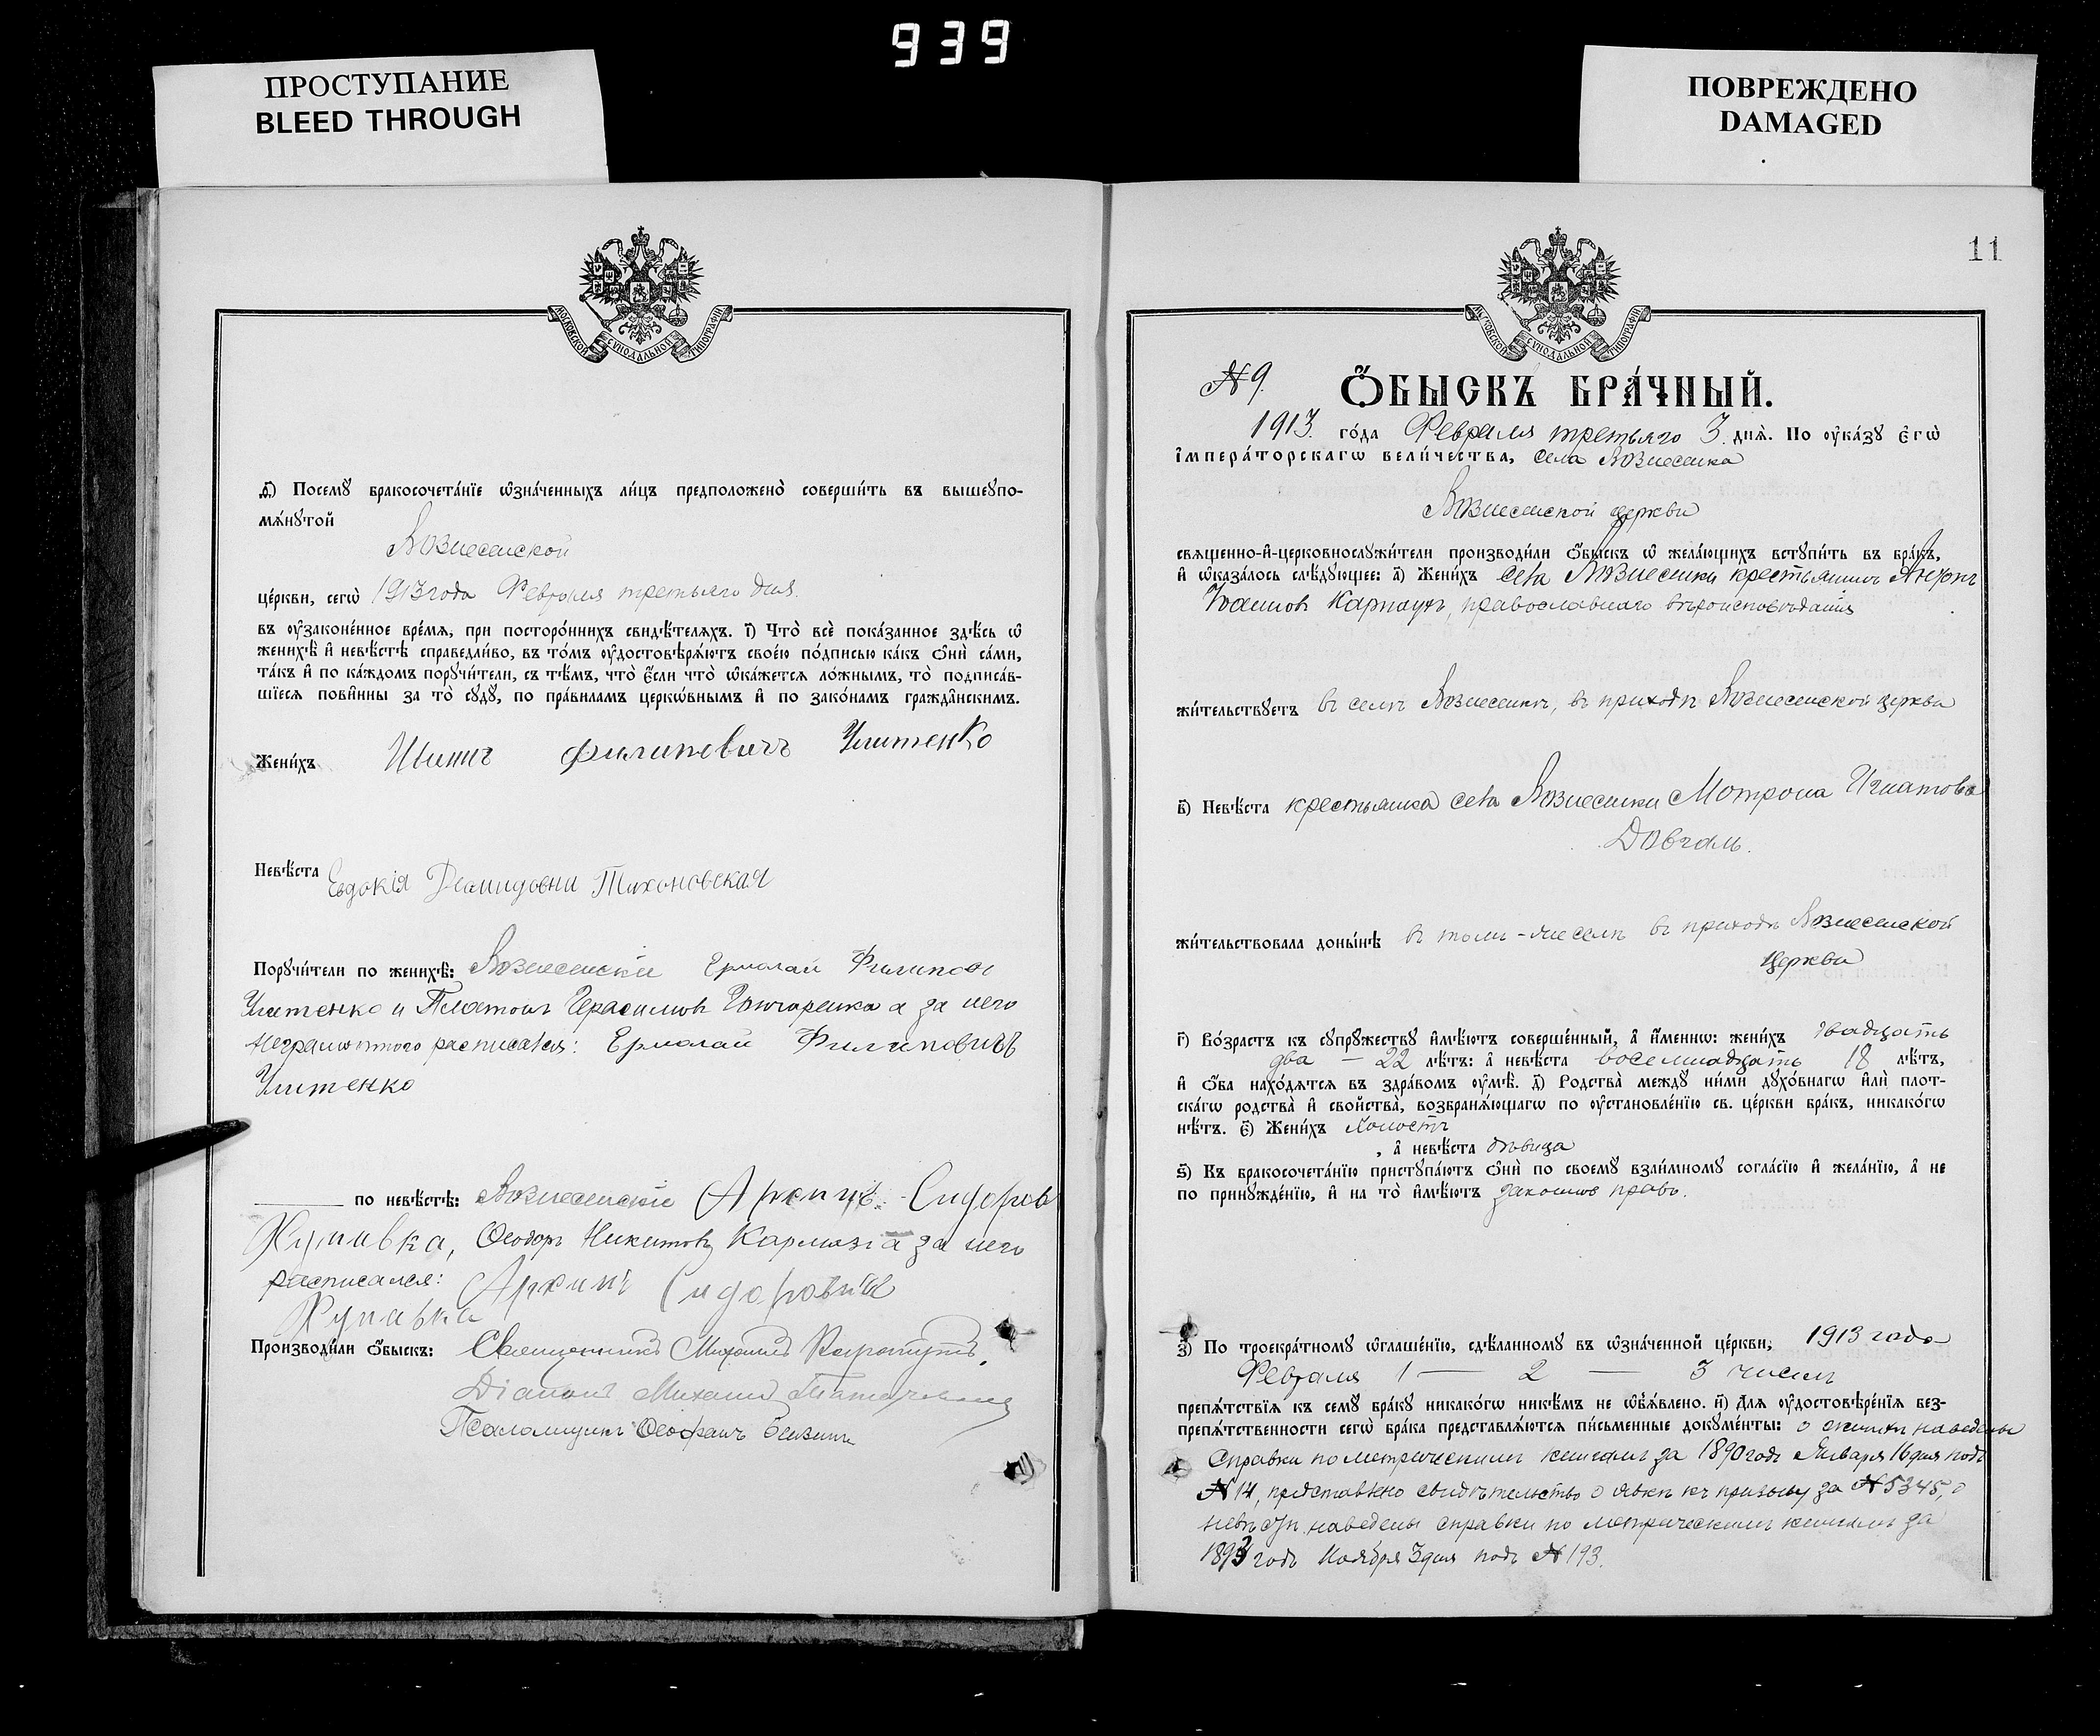 939
ПРОСТУПАНИЕ
BLEED THROUGH
ПОВРЕЖДЕНО
DAMAGED
МОСКОВСКОЙ СУНОДАЛЬНОЙ ТИПОГРАФІИ
д҃і) Посемꙋ бракосочета́нїе ѡ҆зна́ченныхъ ли́цъ предположено̀ соверши́ть въ вышеꙋпо-
мѧ́нꙋтой
Вознесенской
це́ркви, сегѡ̀ 1913 года Февраля третьяго дня.
въ ᲂу҆зако́ненное вре́мѧ, при посторо́ннихъ свидѣ́телѧхъ. і҃) Что̀ всѐ пока́занное здѣ́сь ѡ҆
женихѣ̀ и҆ невѣ́стѣ справедли́во, въ то́мъ ᲂу҆достовѣрѧ́ютъ свое́ю по́дписью ка́къ ѻ҆нѝ са́ми,
та́къ и҆ по ка́ждомъ порꙋчи́тели, съ тѣ́мъ, что̀ є҆́сли что̀ ѡ҆ка́жетсѧ ло́жнымъ, то̀ подписа́в-
шїесѧ пови́нны за то̀ сꙋдꙋ̀, по пра́виламъ церкѡ́внымъ и҆ по зако́намъ гражда́нскимъ.
Жени́хъ Иванъ Филиповичъ Улитенко
Невѣ́ста Евдокія Демидовни Тихоновская
Порꙋчи́тели по женихѣ̀: Вознесенскіе Ермолай Филипов
Улитенко и Платонъ Герасимов Гончаренко а за него
неграмотного расписался: Ермолай Филиповичъ
Улитенко
по невѣ́стѣ: Вознесенскіе Архипъ Сидоров
Хупавка, Ѳеодоръ Никитовъ а за него
расписался: Архипъ Сидоровичъ
Хупавка
Производи́ли ѻ҆́быскъ: Священникъ Михаилъ
Діаконъ Михаилъ
Псаломщикъ Ѳеофанъ
11
МОСКОВСКОЙ СУНОДАЛЬНОЙ ТИПОГРАФІИ
№ 9.
Ѻ҆́БЫСКЪ БРА́ЧНЫЙ.
1913. го́да Февраля третьяго 3. днѧ̀. По ᲂу҆ка́зꙋ є҆гѡ̀
і҆мпера́торскагѡ вели́чества, села Вознесенка
Вознесенской церкви
свѧщенно-и҆-церковнослꙋжи́тели производи́ли ѻ҆́быскъ ѡ҆ жела́ющихъ встꙋпи́ть въ бра́къ,
и҆ ѡ҆каза́лось слѣ́дꙋющее: а҃) Жени́хъ села Вознесенки крестьянинъ
Іоанновъ Карпаухъ, православнаго вѣроисповѣданія
жи́тельствꙋетъ въ селѣ Вознесенкѣ, въ приходѣ Вознесенской церкви
в҃) Невѣ́ста крестьянка села Вознесенки Мотрона Игнатова
Довгаль.
жи́тельствовала доны́нѣ въ томъ-же селѣ въ приходѣ Вознесенской
церкви
г҃) Во́зрастъ къ сꙋпрꙋ́жествꙋ и҆мѣ́ютъ соверше́нный, а҆ и҆́меннѡ: жени́хъ двадцать
два — 22 лѣ́тъ: а҆ невѣ́ста восемнадцать 18 лѣ́тъ,
и҆ ѻ҆́ба нахо́дѧтсѧ въ здра́вомъ ᲂу҆мѣ̀. д҃) Родства̀ междꙋ̀ ни́ми дꙋхо́внагѡ и҆лѝ плот-
ска́гѡ родства̀ и҆ свойства̀, возбранѧ́ющагѡ по ᲂу҆становле́нїю св. це́ркви бра́къ, никако́гѡ
нѣ́тъ. є҃) Жени́хъ холостъ
, а҆ невѣ́ста дѣвица
ѕ҃) Къ бракосочета́нїю пристꙋпа́ютъ ѻ҆нѝ по своемꙋ̀ взаи́мномꙋ согла́сїю и҆ жела́нїю, а҆ не
по принꙋжде́нїю, и҆ на то̀ и҆мѣ́ютъ законное право.
з҃) По троекра́тномꙋ ѡ҆глаше́нїю, сдѣ́ланномꙋ въ ѡ҆зна́ченной це́ркви, 1913 года
Февраля 1 — 2 — 3 чиселъ
препѧ́тствїѧ къ семꙋ̀ бра́кꙋ никако́гѡ никѣ́мъ не ѡ҆б̾ѧ́влено. и҃) Длѧ̀ ᲂу҆достовѣре́нїѧ без-
препѧ́тственности сегѡ̀ бра́ка представлѧ́ютсѧ пи́сьменные докꙋме́нты: о женихѣ наведены
справки по метрическимъ книгамъ за 1890 годъ Января 16 дня подъ
№ 14, представлено свидѣтельство о явкѣ къ призыву за № 5345, о
невѣстѣ наведены справки по метрическимъ книгамъ за
1893 годъ Ноября 3 дня подъ № 193.